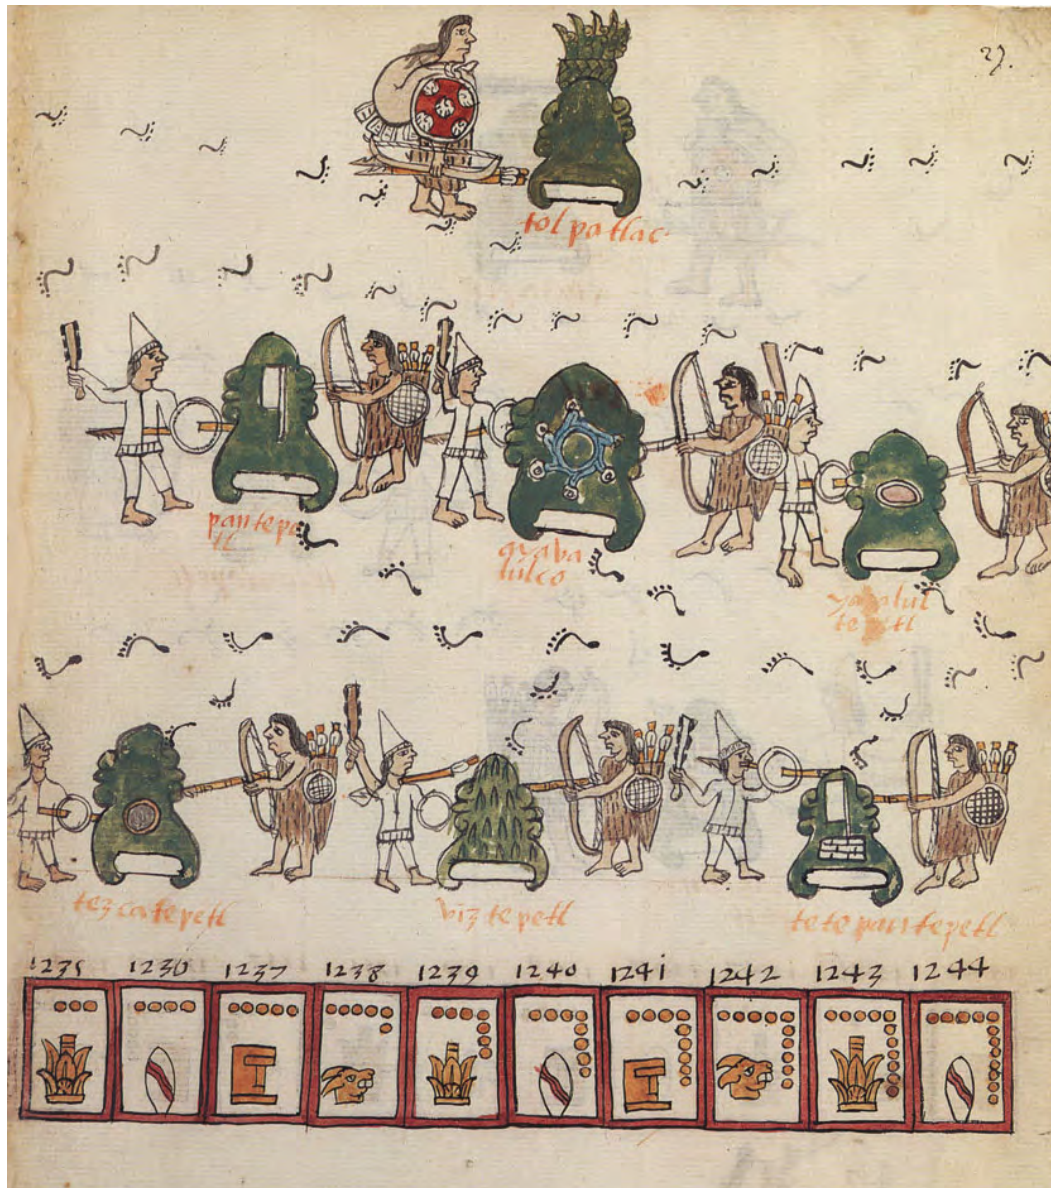 27.
tolpatlac.
pantepe
tl
ayaba
lulco
yayalul
tepetl
tezcatepetl
biztepetl
tetepantepetl
1235 1236 1237 1238 1239 1240 1241 1242 1243 1244